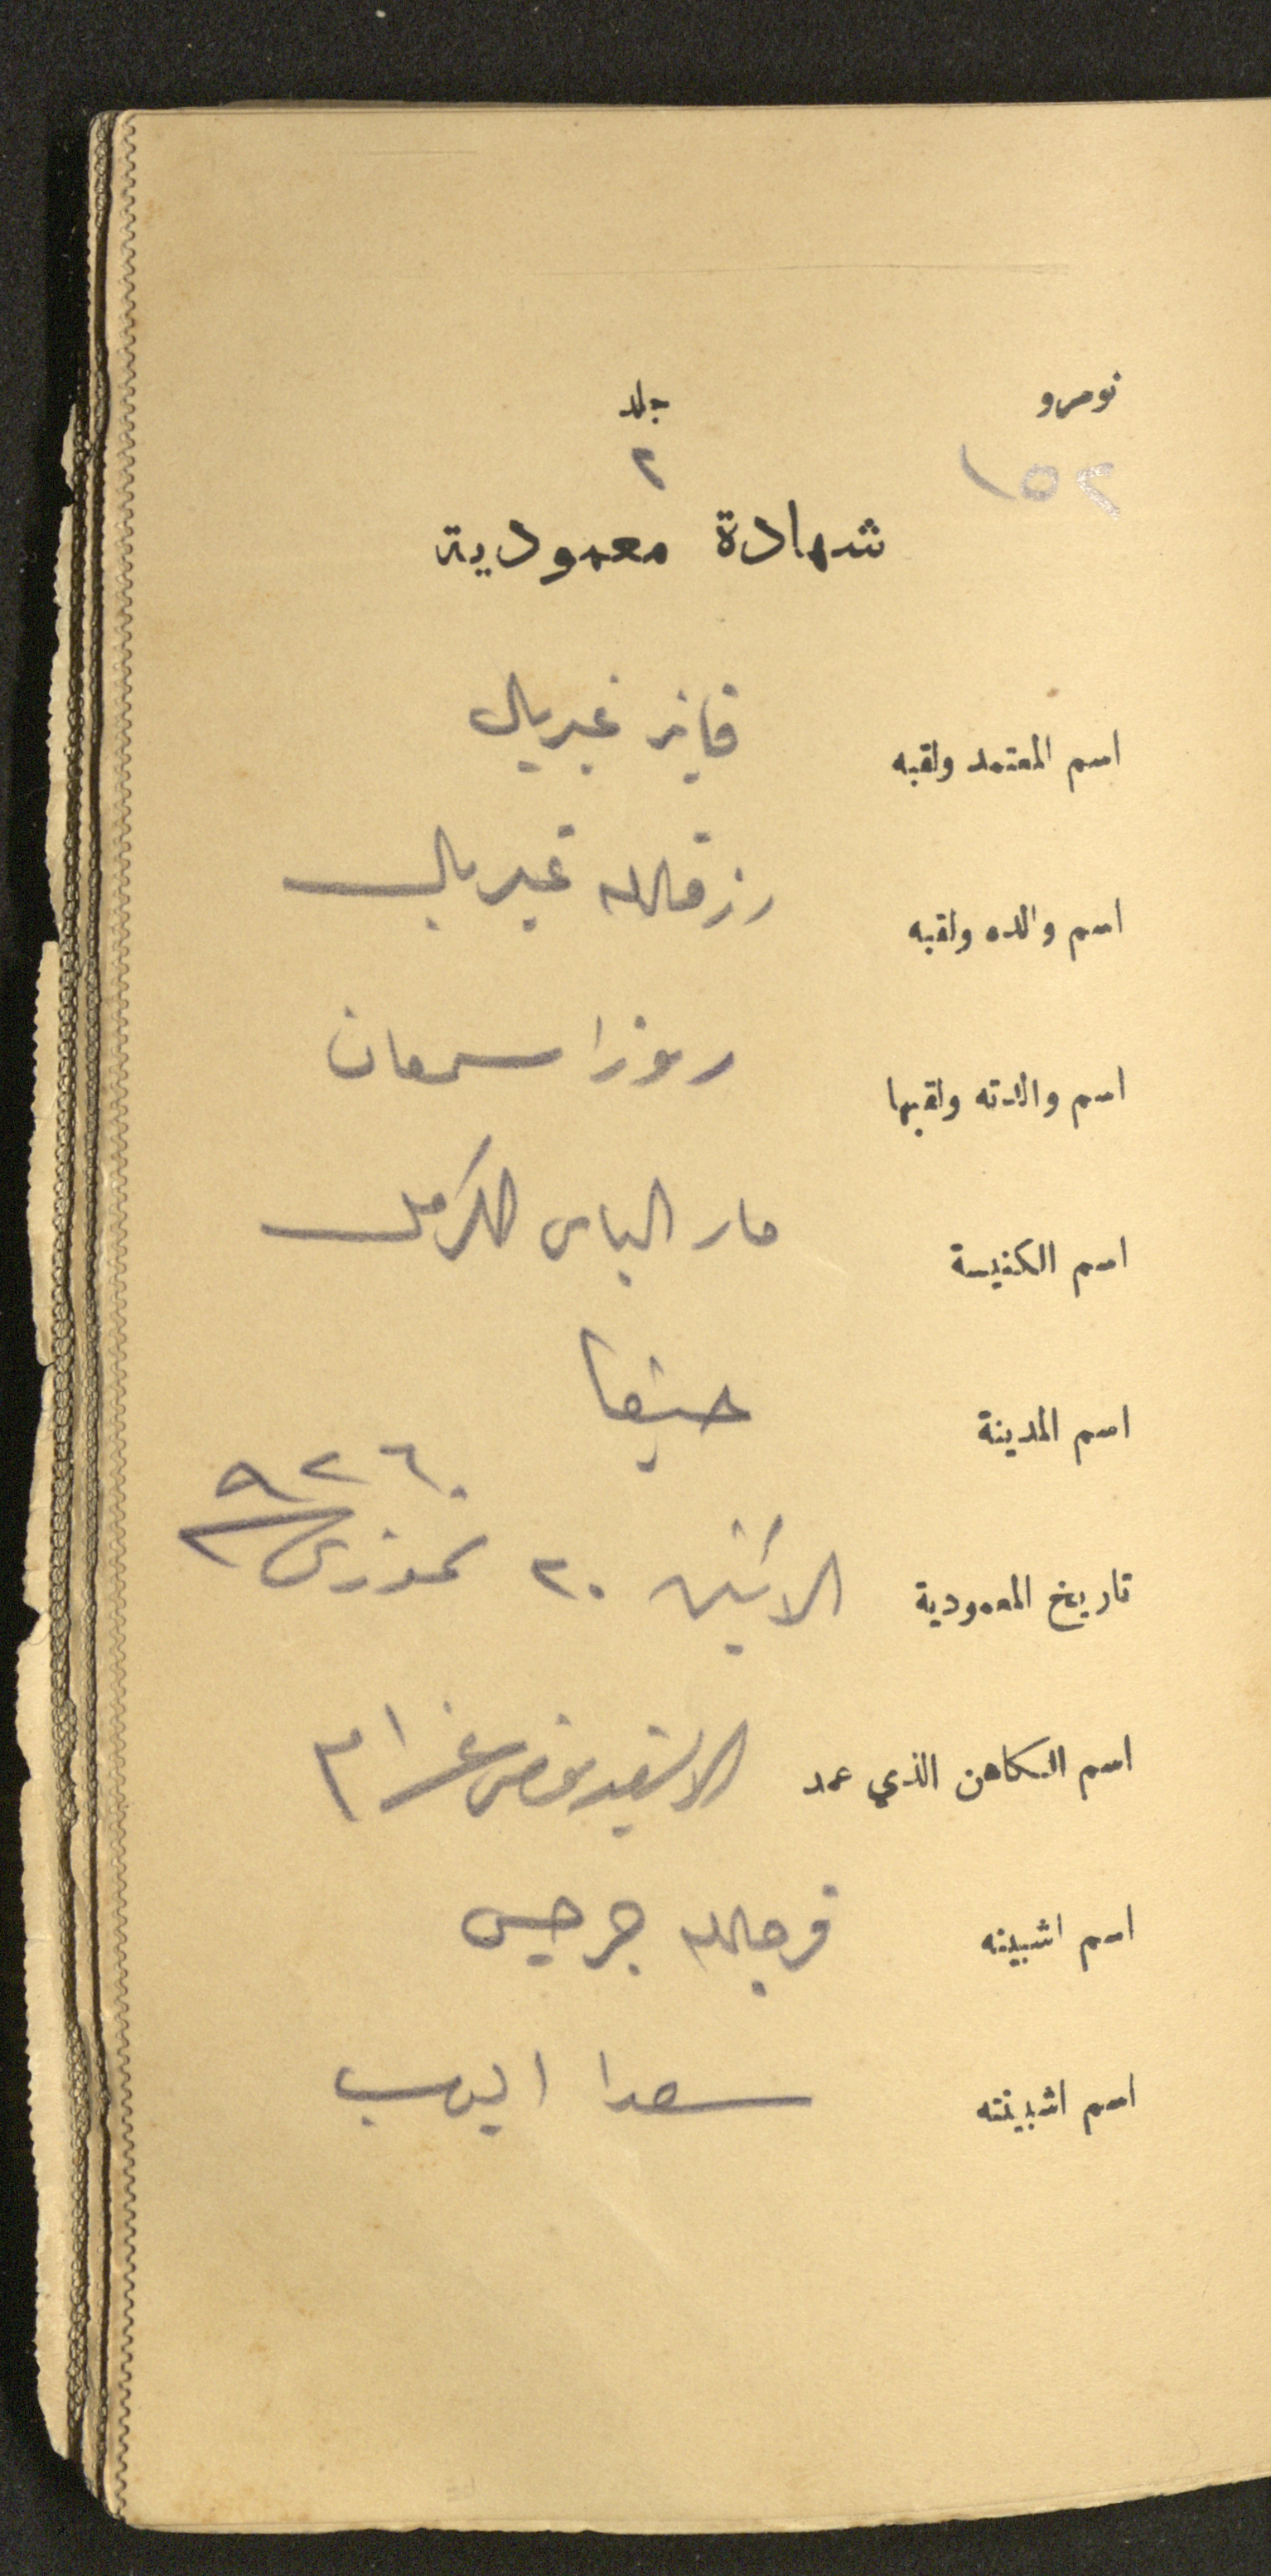 نومرو جلد
١٥٢ ٢
شهادة معمودية
اسم المعتمد ولقبه فايز غبريال
اسم والده ولقبه رزقالله غبريال
اسم والدته ولقبها روزا سمعان
اسم الكنيسة مار الياس الكرمل
اسم المدينة حيفا
٩٢٦
تاريخ المعمودية الاثنين ٢٠ تموز
اسم الكاهن الذي عمد
اسم اشبينه فرجالله جرجس
اسم اشبينته سعدا ايوب